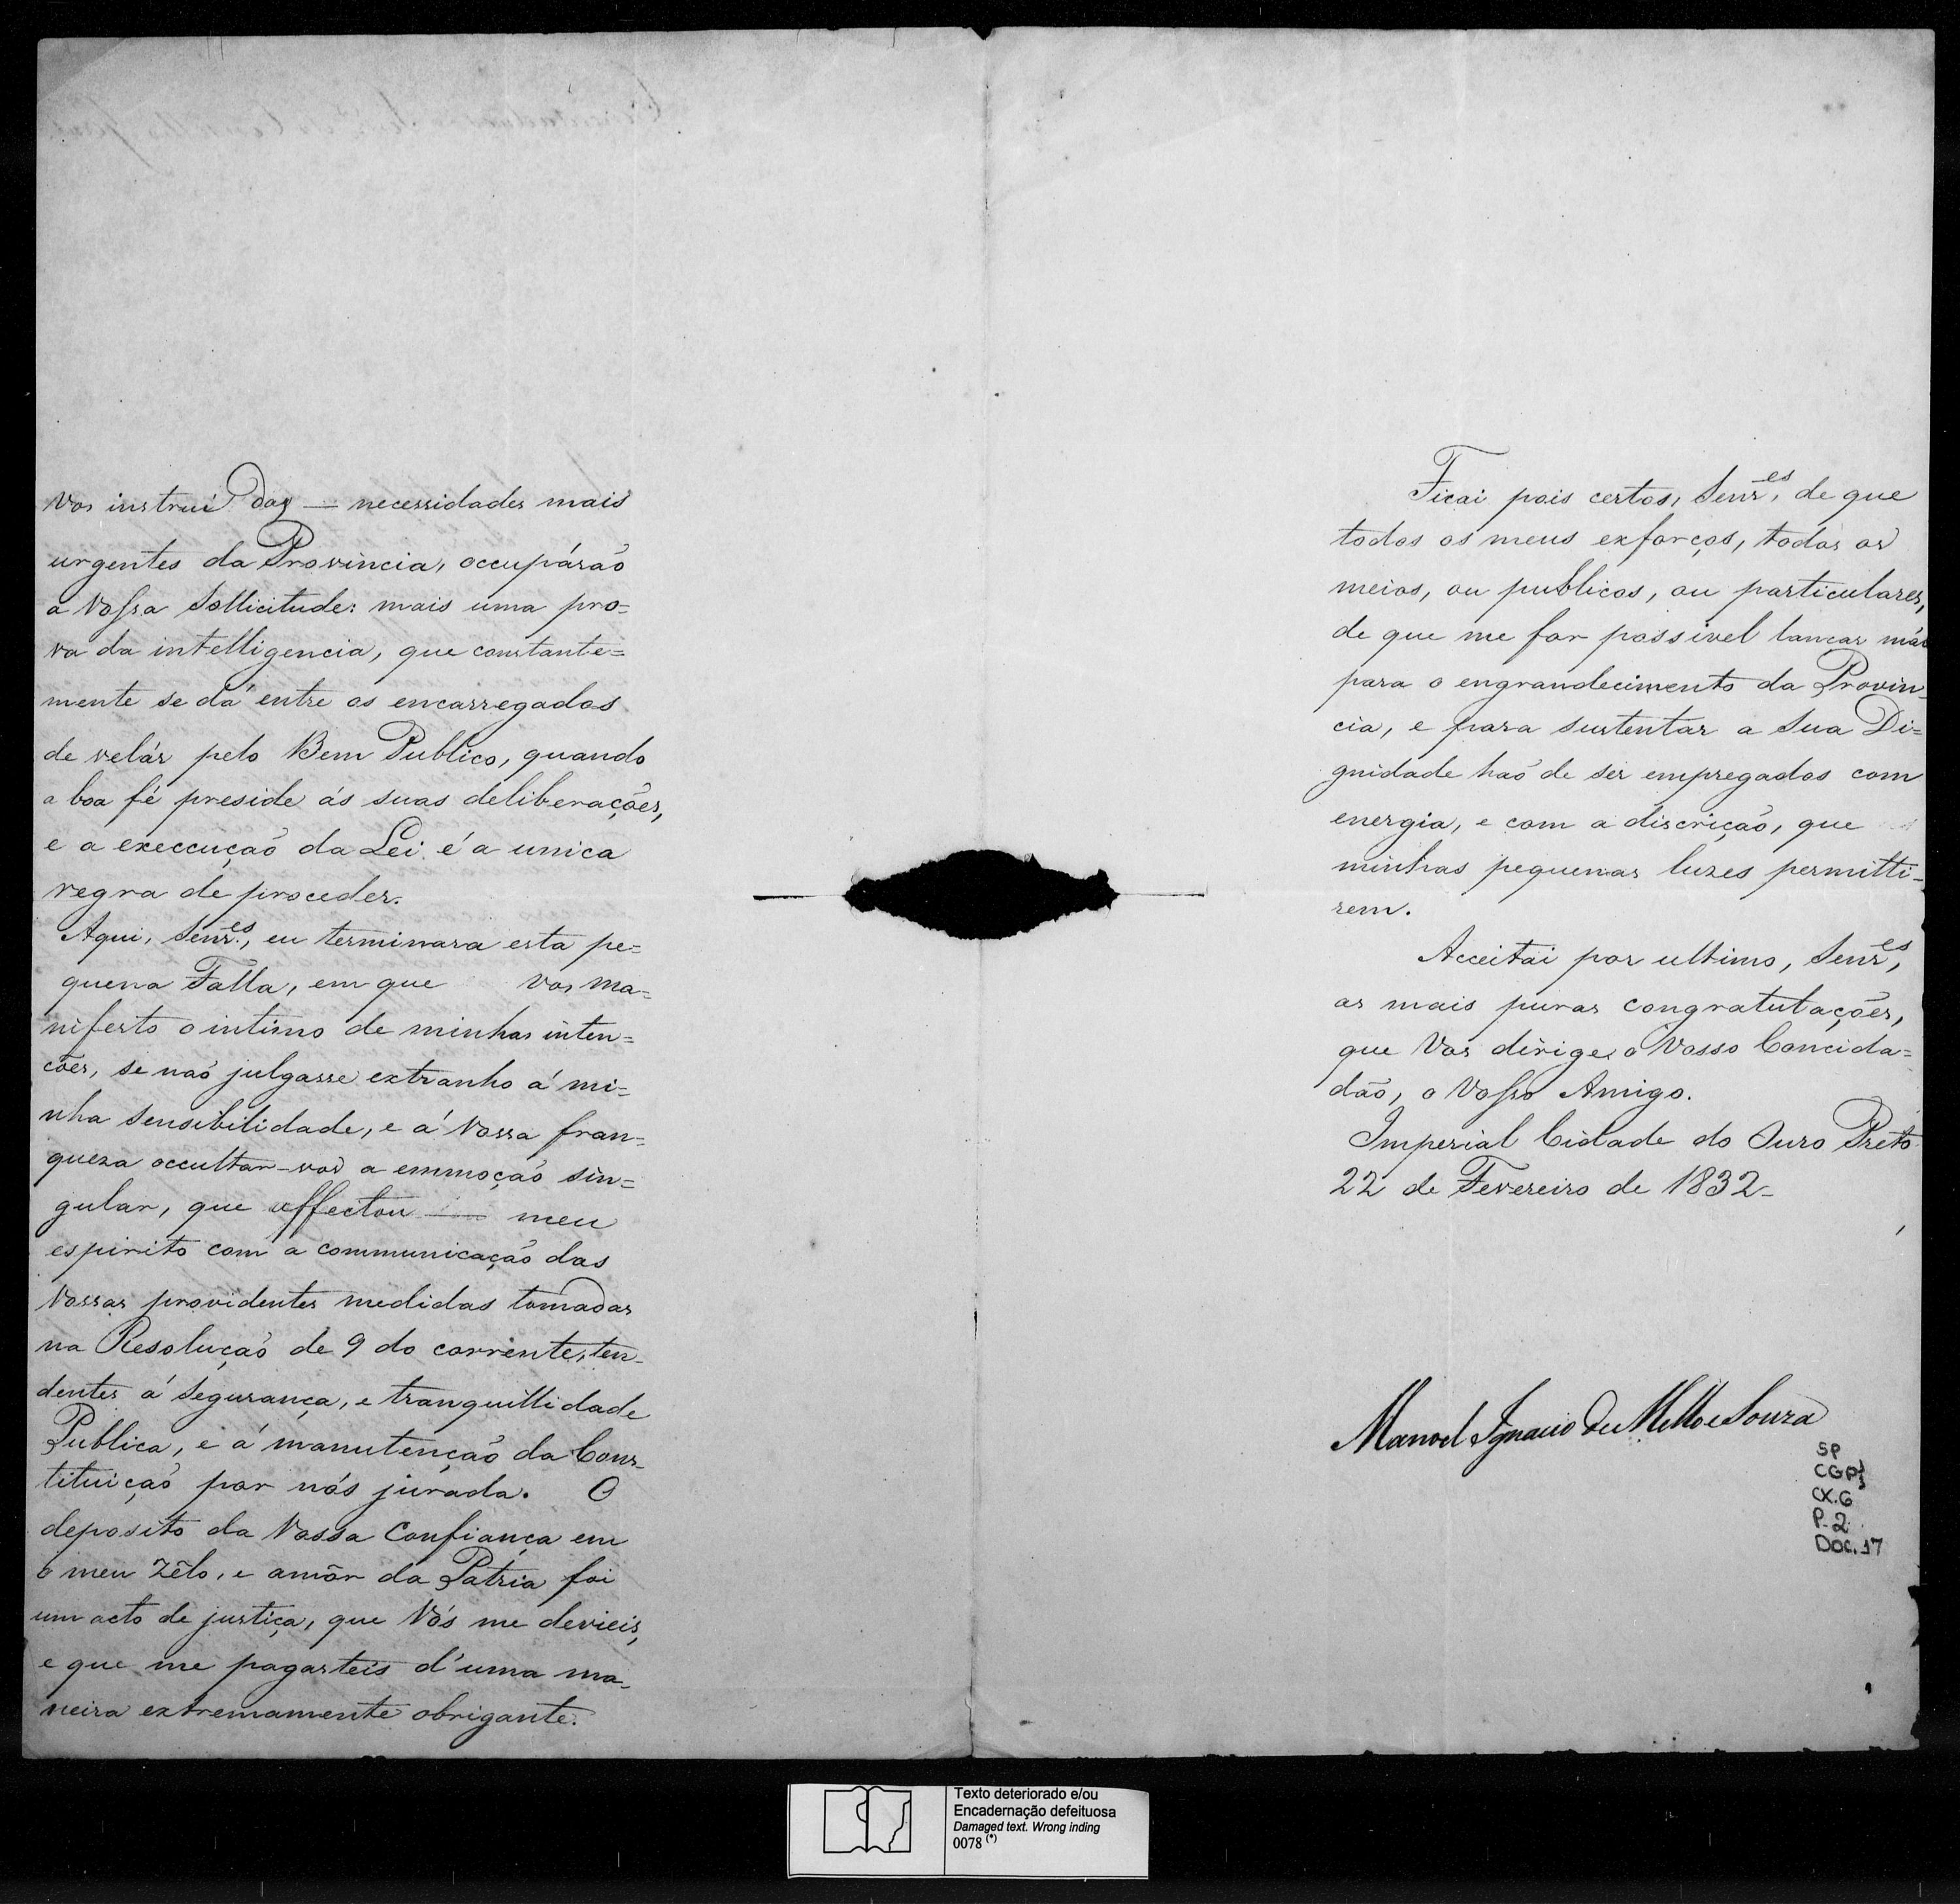 vos instruí das — necessidades mais
urgentes da Provincia, occupáraõ
a Vossa Sollicitude: mais uma pro=
va da intelligencia, que constante=
mente se dá entre os encarregados
de velár pelo Bem Publico, quando
a boa fé preside ás suas deliberações,
e a execcuçaõ da Lei é a unica
regra de proceder.
Aqui, Senr.es, eu terminara esta pe=
quena Falla, em que vos ma=
nifesto o intimo de minhas inten=
cões, se naõ julgasse extranho á mi=
nha Sensibilidade, e á Vossa fran=
queza occultar-vos a emmoçaõ sin=
gular, que affectou — meu
espirito com a communicaçaõ das
Vossas providentes medidas tomadas
na Resoluçaõ de 9 do corrente, ten-
dentes á Segurança, e tranquillidade
Publica, e á manutençaõ da Cons-
tituiçaõ por nós jurada. O
deposito da Vossa Confiança em
o meu Zêlo, e amôr da Patria foi
um acto de justiça, que Vós me devieis,
e que me pagasteis d'uma ma-
neira extremamente obrigante.
Ficai pois certos, Senr.es, de que
todos os meus exforços, todos os
meios, ou publicos, ou particulares,
de que me for possivel lançar mão
para o engrandecimento da Provin-
cia, e para sustentar a Sua Di=
gnidade haõ de ser empregados com
energia, e com a discriçaõ, que
minhas pequenas luzes permitti-
rem.
Acceitai por ultimo, Senr.es,
as mais puras congratulações,
que Vos dirige o Vosso Concida=
dão, o Vosso Amigo.
Imperial Cidade do Ouro Preto
22 de Fevereiro de 1832-
Manoel Ignacio de Mello e Souza
SP
CGP1
CX.6
P-2
DOC.17
Texto deteriorado e/ou
Encadernação defeituosa
Damaged text. Wrong inding
0078 (*)